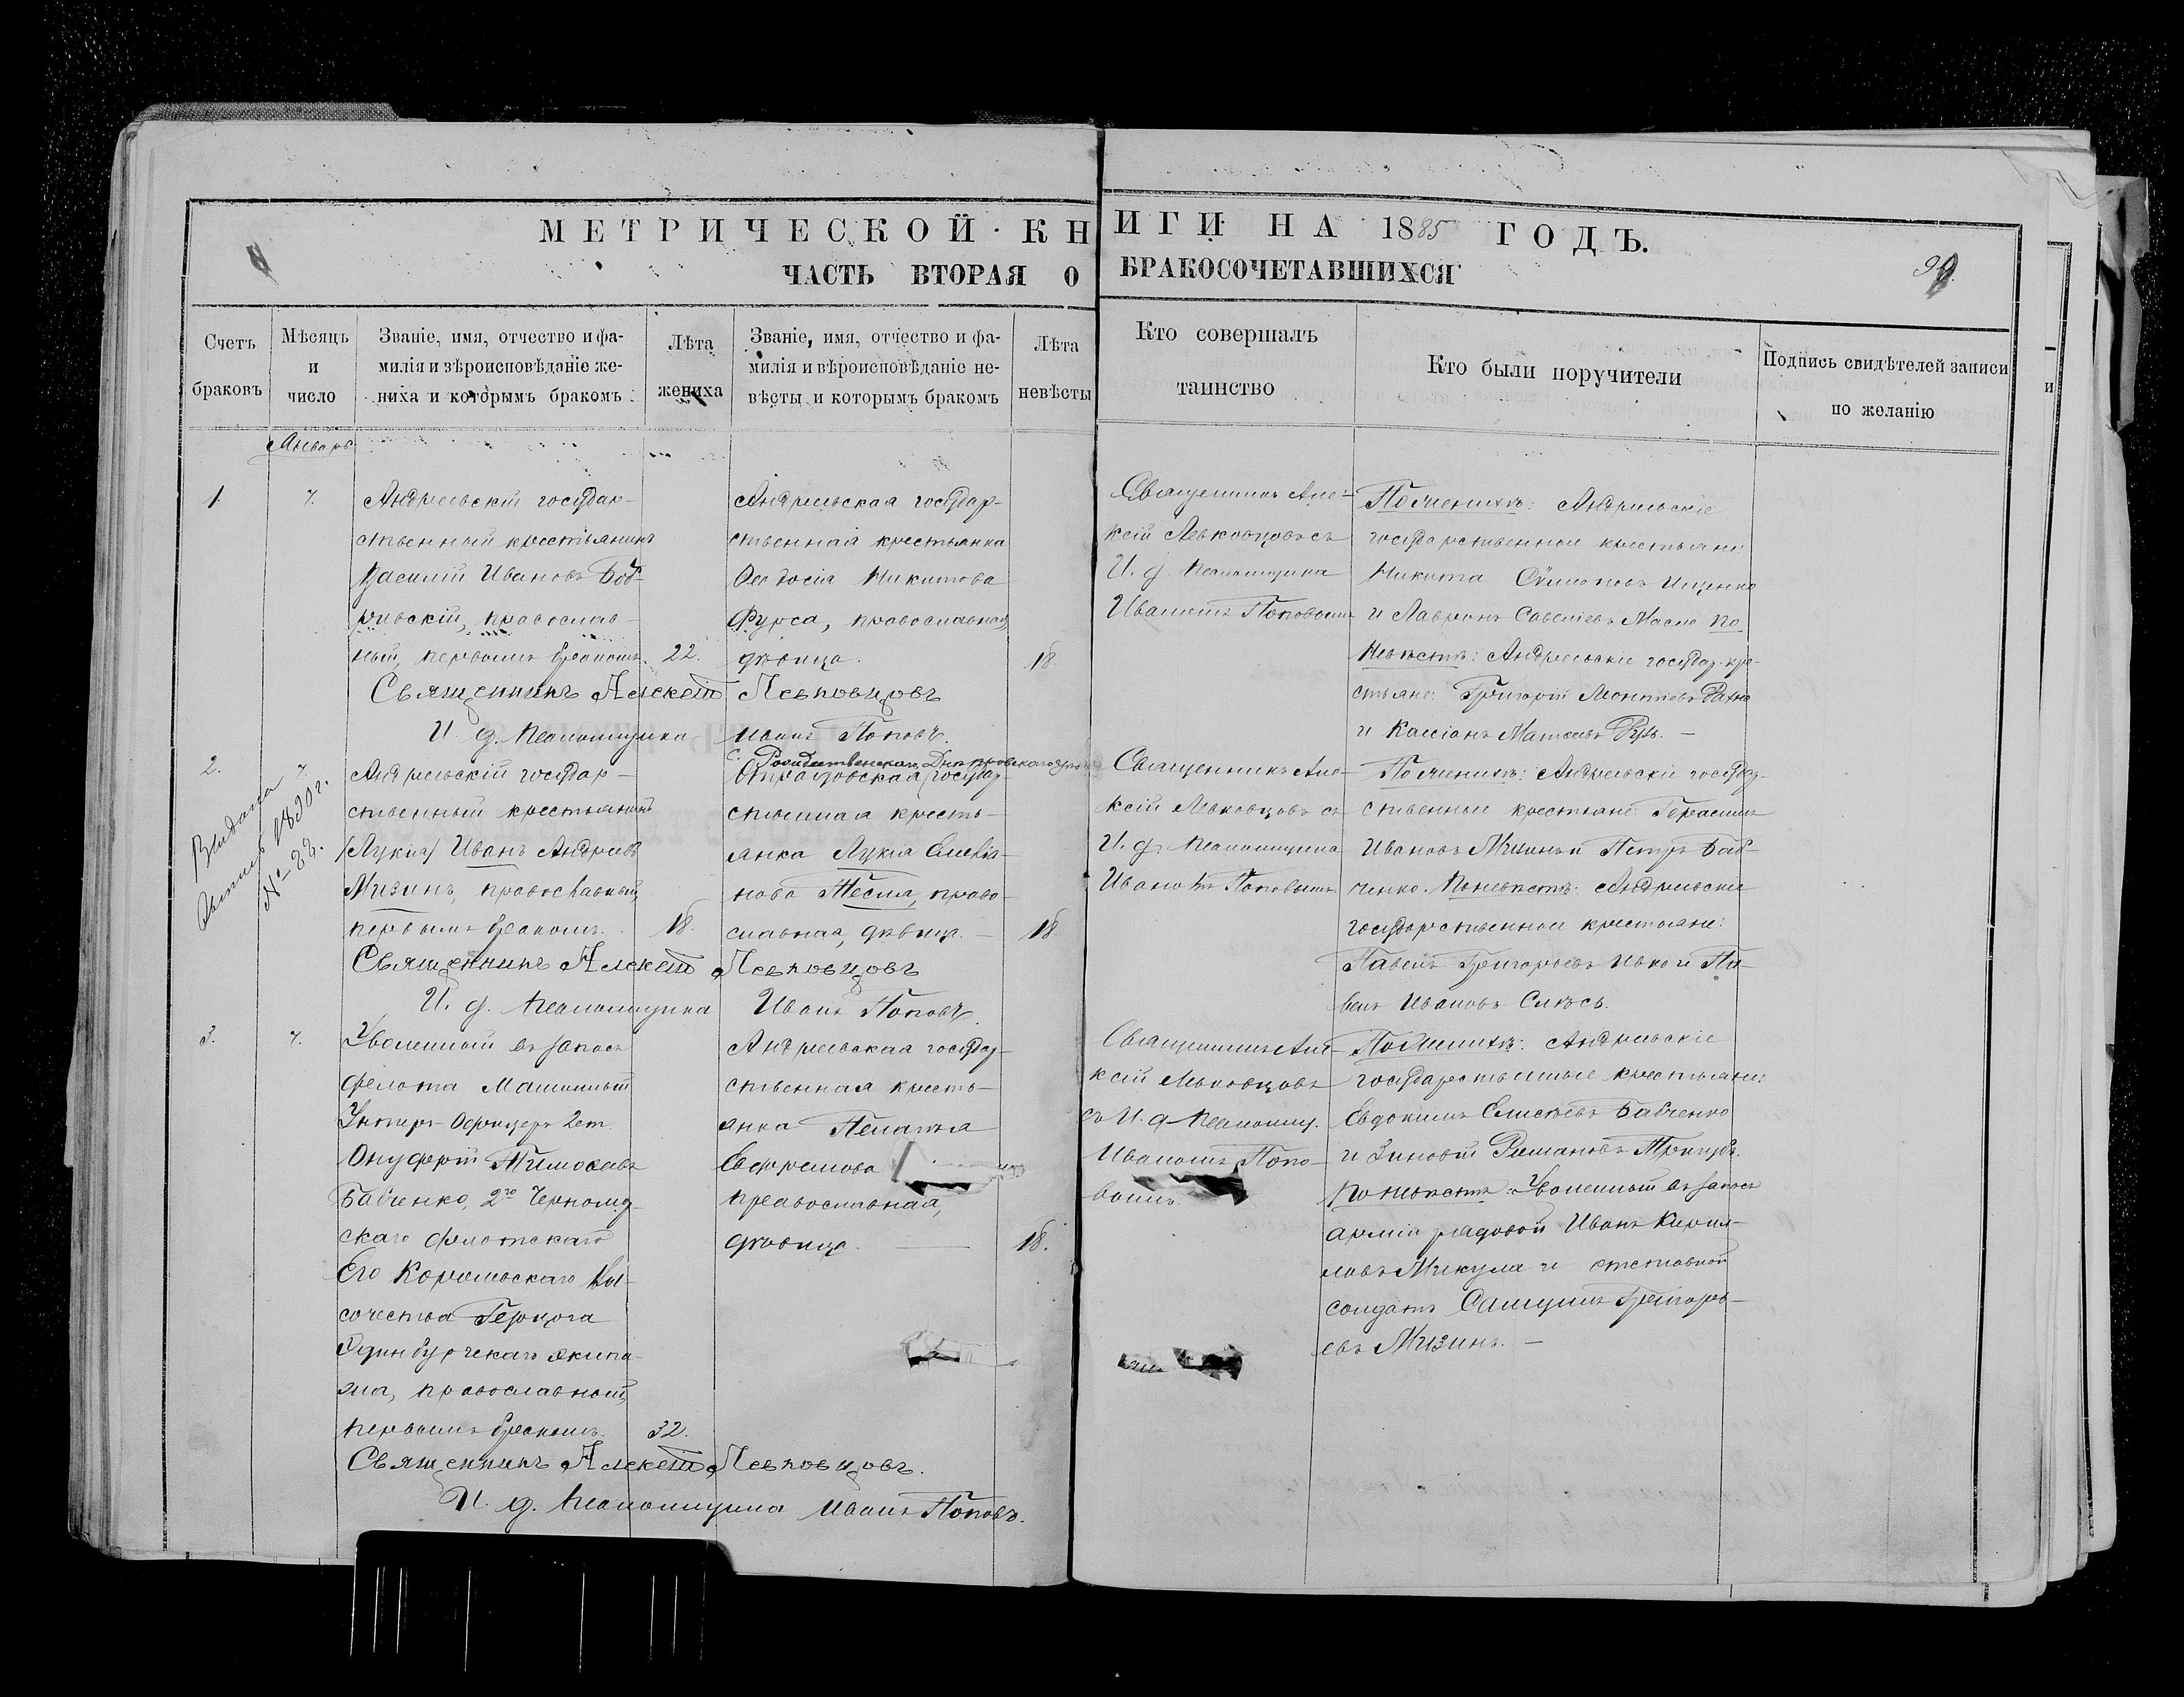 МЕТРИЧЕСКОЙ КНИГИ НА 1885 ГОДЪ.
ЧАСТЬ ВТОРАЯ О БРАКОСОЧЕТАВШИХСЯ
Счетъ
браковъ
Мѣсяцъ
и
число
Званіе, имя, отчество и фа-
милія и вѣроисповѣданіе же-
ниха и которымъ бракомъ
Лѣта
жениха
Званіе, имя, отчество и фа-
милія и вѣроисповѣданіе не-
вѣсты и которымъ бракомъ
Лѣта
невѣсты
Кто совершалъ
таинство
Кто были поручители
Подпись свидѣтелей записи
по желанію
Январь
1.
7.
Андреевскій государ-
ственный крестьянинъ
Василій Ивановъ Боб-
рывскій, православ-
ный, первымъ бракомъ.
22.
Андреевская государ-
ственная крестьянка
Ѳеодосія Никитова
Фурса, православная,
дѣвица.
18.
Священникъ Але-
ксій Левковцовъ съ
И. д. Псаломщика
Иваномъ Поповымъ
По женихѣ: Андреевскіе
государственные крестьяне:
Никита Ищенко
и Савеліевъ Масло по
невѣстѣ: Андреевскіе государ. кре-
стьяне: Григорій Леонтіевъ
и Кассіанъ Матвеевъ
Священникъ Алексій Левковцовъ
И. д. Псаломщика Иванъ Поповъ.
2.
7.
Выдана
1890 г.
№ 22.
Андреевскій государ-
ственный крестьянинъ
(Лукія) Иванъ Андреевъ
Мизинъ, православный,
первымъ бракомъ.
18.
С. Рождественскаго, Днѣпровскаго уѣз.
государ-
ственная кресть-
янка Лукія Емелія-
нова Тесля, право-
славная, дѣвица.
18.
Священникъ Але-
ксій Левковцовъ съ
И. д. Псаломщика
Иваномъ Поповымъ
По женихѣ: Андреевскіе государ-
ственные крестьяне: Герасимъ
Ивановъ Мизинъ и Петръ Баб-
ченко. По невѣстѣ: Андреевскіе
государственные крестьяне:
Павелъ Григорьевъ Ивко и Па-
велъ Ивановъ
Священникъ Алексій Левковцовъ
И. д. Псаломщика Иванъ Поповъ.
3.
7.
Уволенный въ запасъ
флота Машинный
Унтеръ-Офицеръ 2 ст.
Онуфрій
Бабченко, 2го Черномор-
скаго флотскаго
Его Королевскаго Вы-
сочества Герцога
Эдинбургскаго экипа-
жа, православный,
первымъ бракомъ.
32.
Андреевская государ-
ственная кресть-
янка Пелагія
Ефремова
православная,
дѣвица.
18.
Священникъ Але-
ксій Левковцовъ
съ И. д. Псаломщ.
Иваномъ Попо-
вымъ.
По женихѣ: Андреевскіе
государственные крестьяне:
Евдокимъ Елисѣевъ Бабченко
и Зиновій Романовъ
По невѣстѣ: Уволенный въ запасъ
арміи рядовой Иванъ Кирил-
ловъ Микула и отставной
солдатъ Самуилъ Григорь-
евъ Мизинъ.
Священникъ Алексій Левковцовъ.
И. д. Псаломщика Иванъ Поповъ.